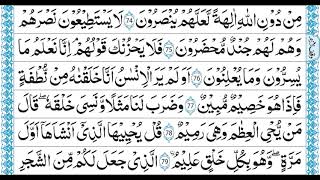 مِنْ دُوْنِ اللّٰهِ اٰلِهَةً لَّعَلَّهُمْ يُنْصَرُوْنَ ﴿74﴾ لَا يَسْتَطِيْعُوْنَ نَصْرَهُمْ
وَهُمْ لَهُمْ جُنْدٌ مُّحْضَرُوْنَ ﴿75﴾ فَلَا يَحْزُنْكَ قَوْلُهُمْ اِنَّا نَعْلَمُ مَا
يُسِرُّوْنَ وَمَا يُعْلِنُوْنَ ﴿76﴾ اَوَلَمْ يَرَ الْاِنْسَانُ اَنَّا خَلَقْنٰهُ مِنْ نُّطْفَةٍ
فَاِذَا هُوَ خَصِيْمٌ مُّبِيْنٌ ﴿77﴾ وَضَرَبَ لَنَا مَثَلًا وَّنَسِىَ خَلْقَهٗ قَالَ
مَنْ يُّحْىِ الْعِظَامَ وَهِىَ رَمِيْمٌ ﴿78﴾ قُلْ يُحْيِيْهَا الَّذِىْٓ اَنْشَاَهَآ اَوَّلَ
مَرَّةٍ وَهُوَ بِكُلِّ خَلْقٍ عَلِيْمٌ ﴿79﴾ الَّذِىْ جَعَلَ لَكُمْ مِّنَ الشَّجَرِ